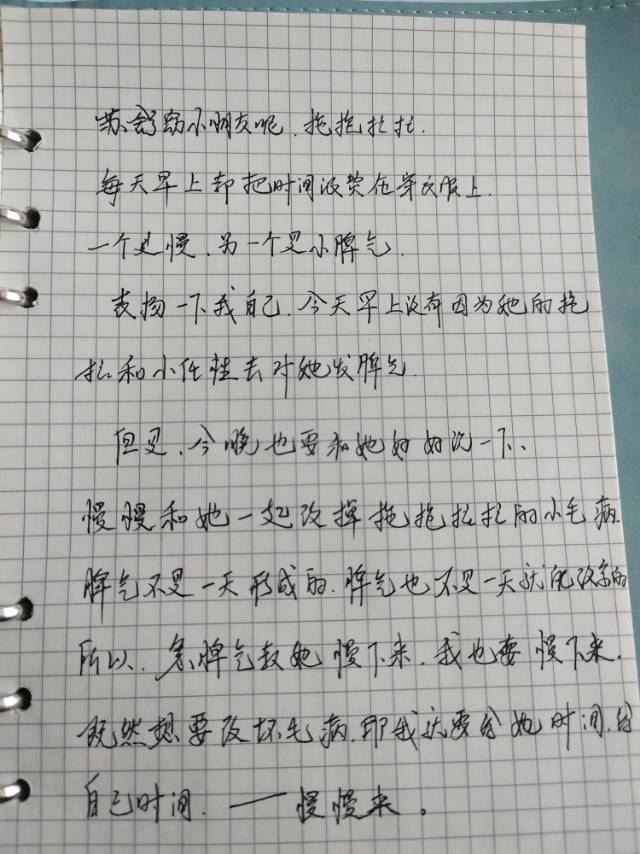 苏舒窈小朋友呢、拖拖拉拉.
每天早上却把时间浪费在穿衣服上.
一个是慢、另一个是小脾气.
表扬一下我自己、今天早上没有因为她的拖
拉和小任性去对她发脾气.
但是、今晚也要和她好好说一下、
慢慢和她一起改掉拖拖拉拉的小毛病.
脾气不是一天形成的、脾气也不是一天就能改的
所以、急脾气教她慢下来、我也要慢下来、
既然想要改坏毛病、那我就要给她时间、给
自己时间、——慢慢来。